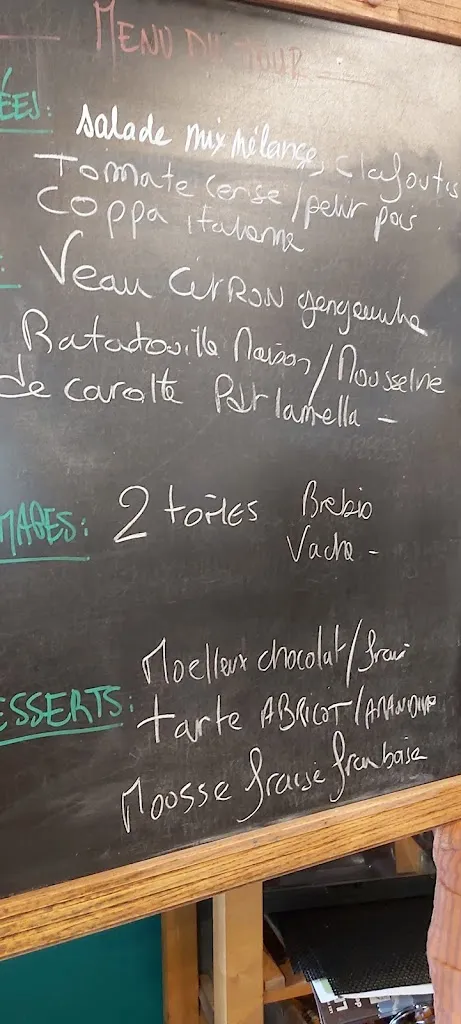 MENU DU JOUR
ÉES: salade mix mélange, Clafoutis
Tomate Cerise / petit pois
Coppa italienne
: Veau CITRON gengembre
Ratatouille Maison / Mousseline
de carotte
2 toiles Brebis
MAGES: Vache -
Moelleux chocolat /
ESSERTS: tarte ABRICOT / AMANDINE
Mousse fraise framboise